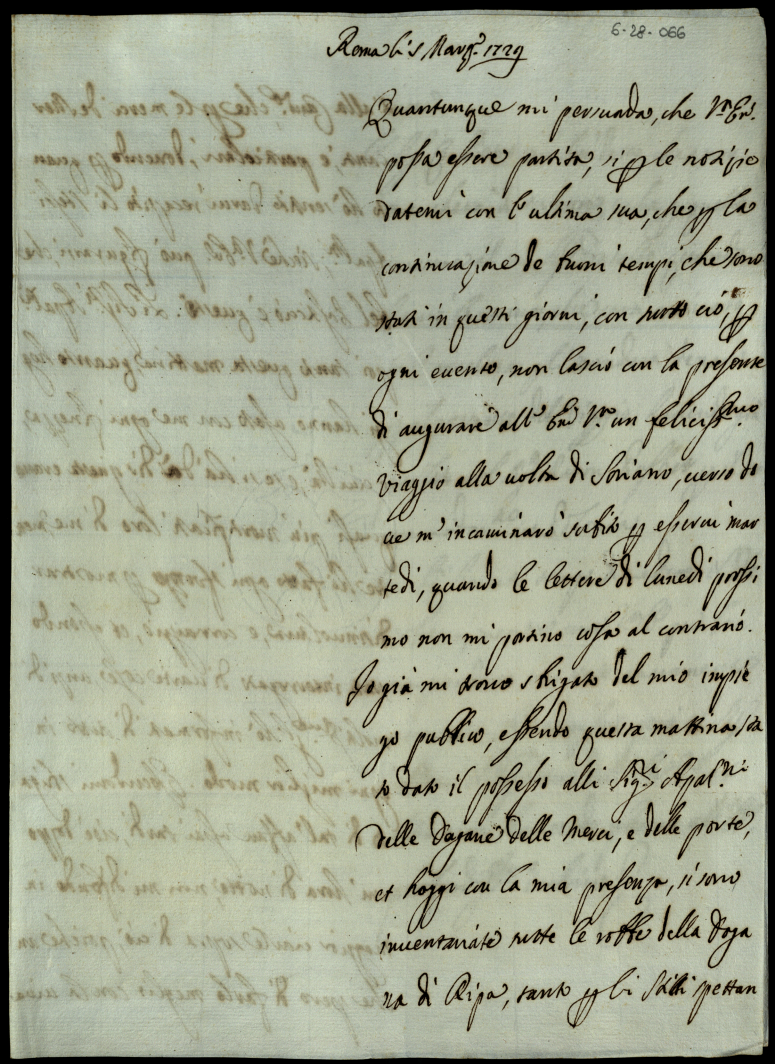 6-28-066
Roma li 5 Marzo 1729
Quantunque mi persuada, che V.ra Ecc.
possa essere partita, si p le notizie
datemi con l'ultima sua, che p la
continuazione de buoni tempi, che sono
stati in questi giorni, con tutto ciò, p
ogni evento, non lascio con la presente
di augurare all' Ecc V.ra un feliciss.mo
viaggio alla volta di Soriano, verso do
ve m'incaminarò subito p esservi mar
tedi, quando le lettere di lunedi prossi
mo non mi portino cosa al contrario.
Io già mi trovo sbrigato del mio impie
go publico, essendo questa mattina sta
to dato il possesso alli Sig.ri Apal.ri
delle Dogane delle Merci, e delle porte,
et hoggi con la mia presenza, si sono
inventariate tutte le robbe della Doga
na di Ripa, tanto p li spettan